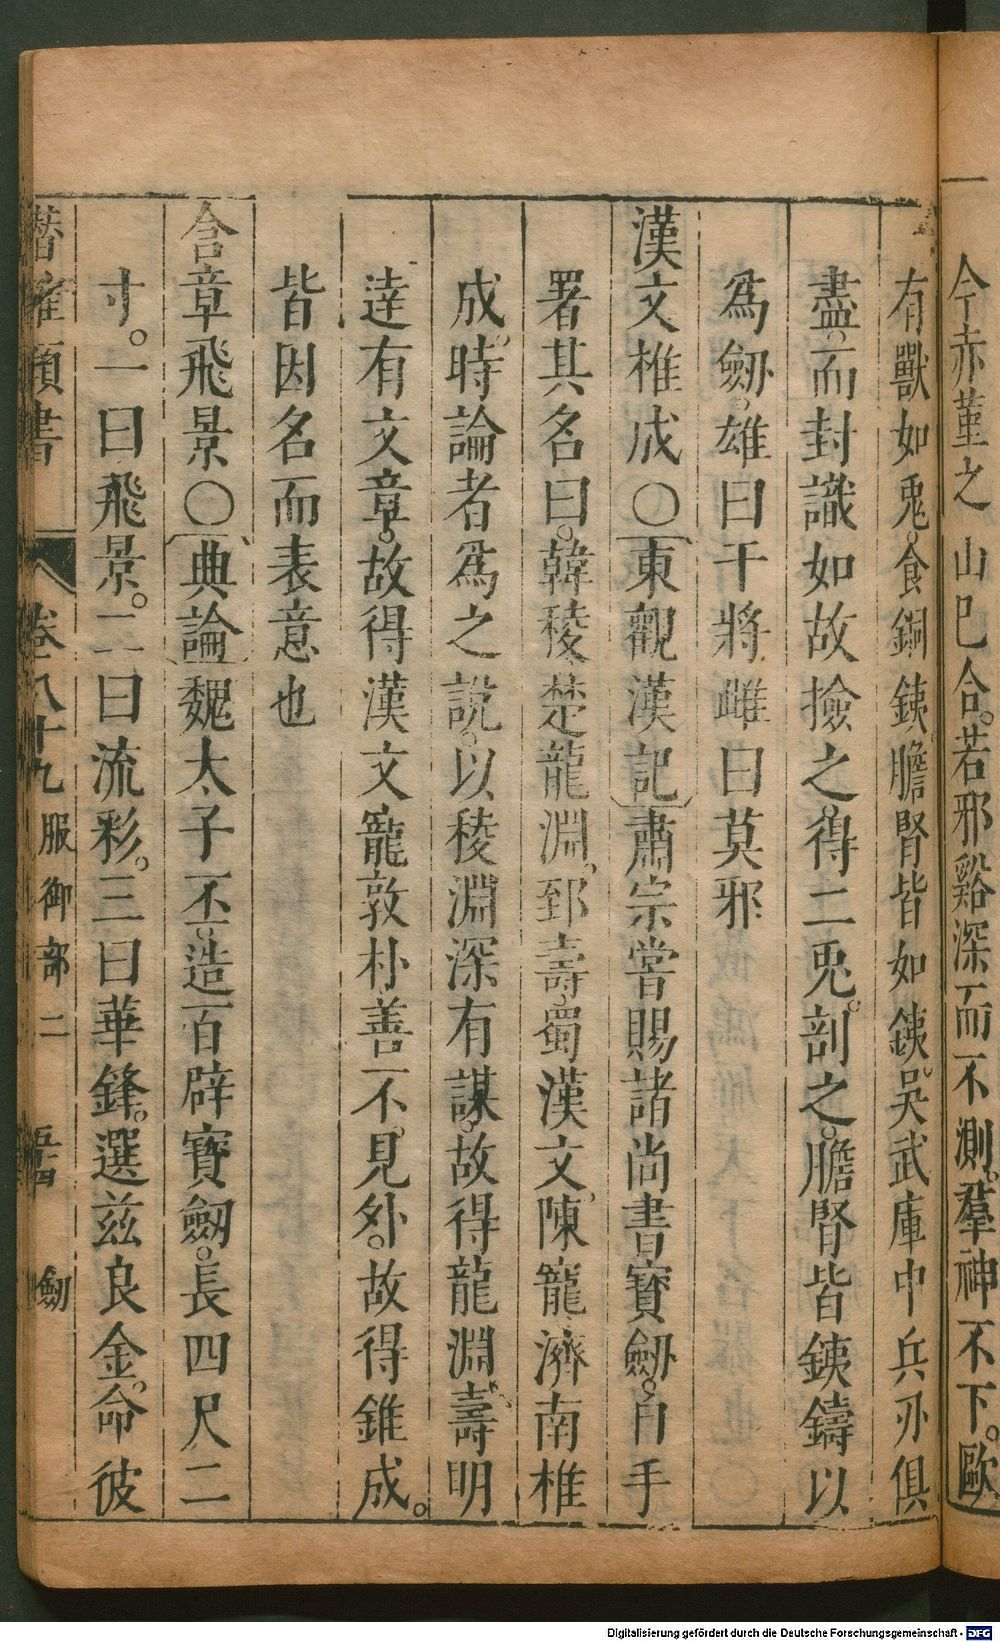 今赤堇之山巳合。若邪谿深而不測。羣神不下。歐
有獸如兎。食銅鉄。膽腎皆如鉄。吳武庫中兵刃俱
盡。而封識如故撿之。得二兎。剖之。膽腎皆鉄鑄以
爲劔。雄曰干將雌曰莫邪
漢文椎成○東觀漢記肅宗嘗賜諸尚書寶劔。自手
署其名曰。韓稜楚龍淵。郅壽蜀漢文。陳寵濟南椎
成。時論者爲之說。以稜淵深有謀。故得龍淵。壽明
達有文章。故得漢文寵敦朴善不見外。故得錐成。
皆因名而表意也
含章飛景○典論魏太子丕造百辟寶劔。長四尺二
寸。一曰飛景。二曰流彩。三曰華鋒。選兹良金。命彼
潛確類書 卷八十九 服御部二 五十四 劔
Digitalisierung gefördert durch die Deutsche Forschungsgemeinschaft - DFG